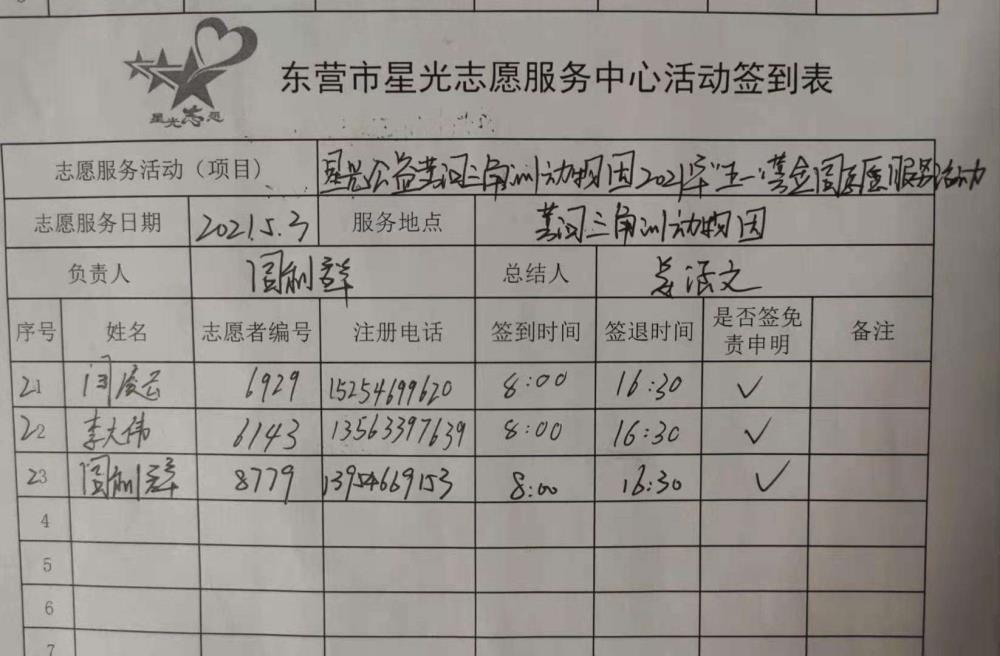 星光志愿
东营市星光志愿服务中心活动签到表
志愿服务活动（项目） 星光公益黄河三角洲动物园2021年"五一"黄金周 服务活动
志愿服务日期 2021.5.3 服务地点 黄河三角洲动物园
负责人 阎利群 总结人 文
序号 姓名 志愿者编号 注册电话 签到时间 签退时间 是否签免责申明 备注
21 闫凌云 6929 15254699620 8:00 16:30 ✓
22 李大伟 6143 13563397639 8:00 16:30 ✓
23 阎利群 8779 13954669153 8:00 16:30 ✓
4
5
6
7